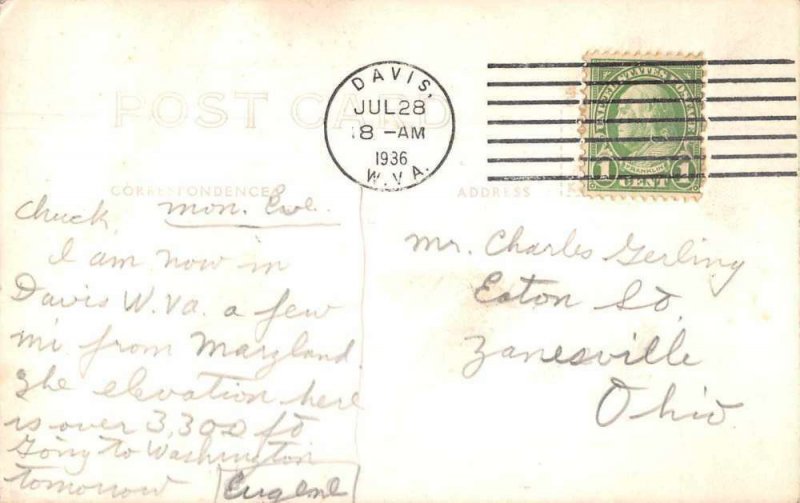 POST CARD
DAVIS,
JUL 28
8 -AM
1936
W.VA.
UNITED STATES POSTAGE
FRANKLIN
1 CENT 1
CORRESPONDENCE
ADDRESS
Chuck, Mon. Eve.
I am now in
Davis W.Va. a few
mi from Maryland
The elevation here
is over 3,300 ft
Going to Washington
tomorrow Eugene
Mr. Charles Gerling
Eaton St.
Zanesville
Ohio.